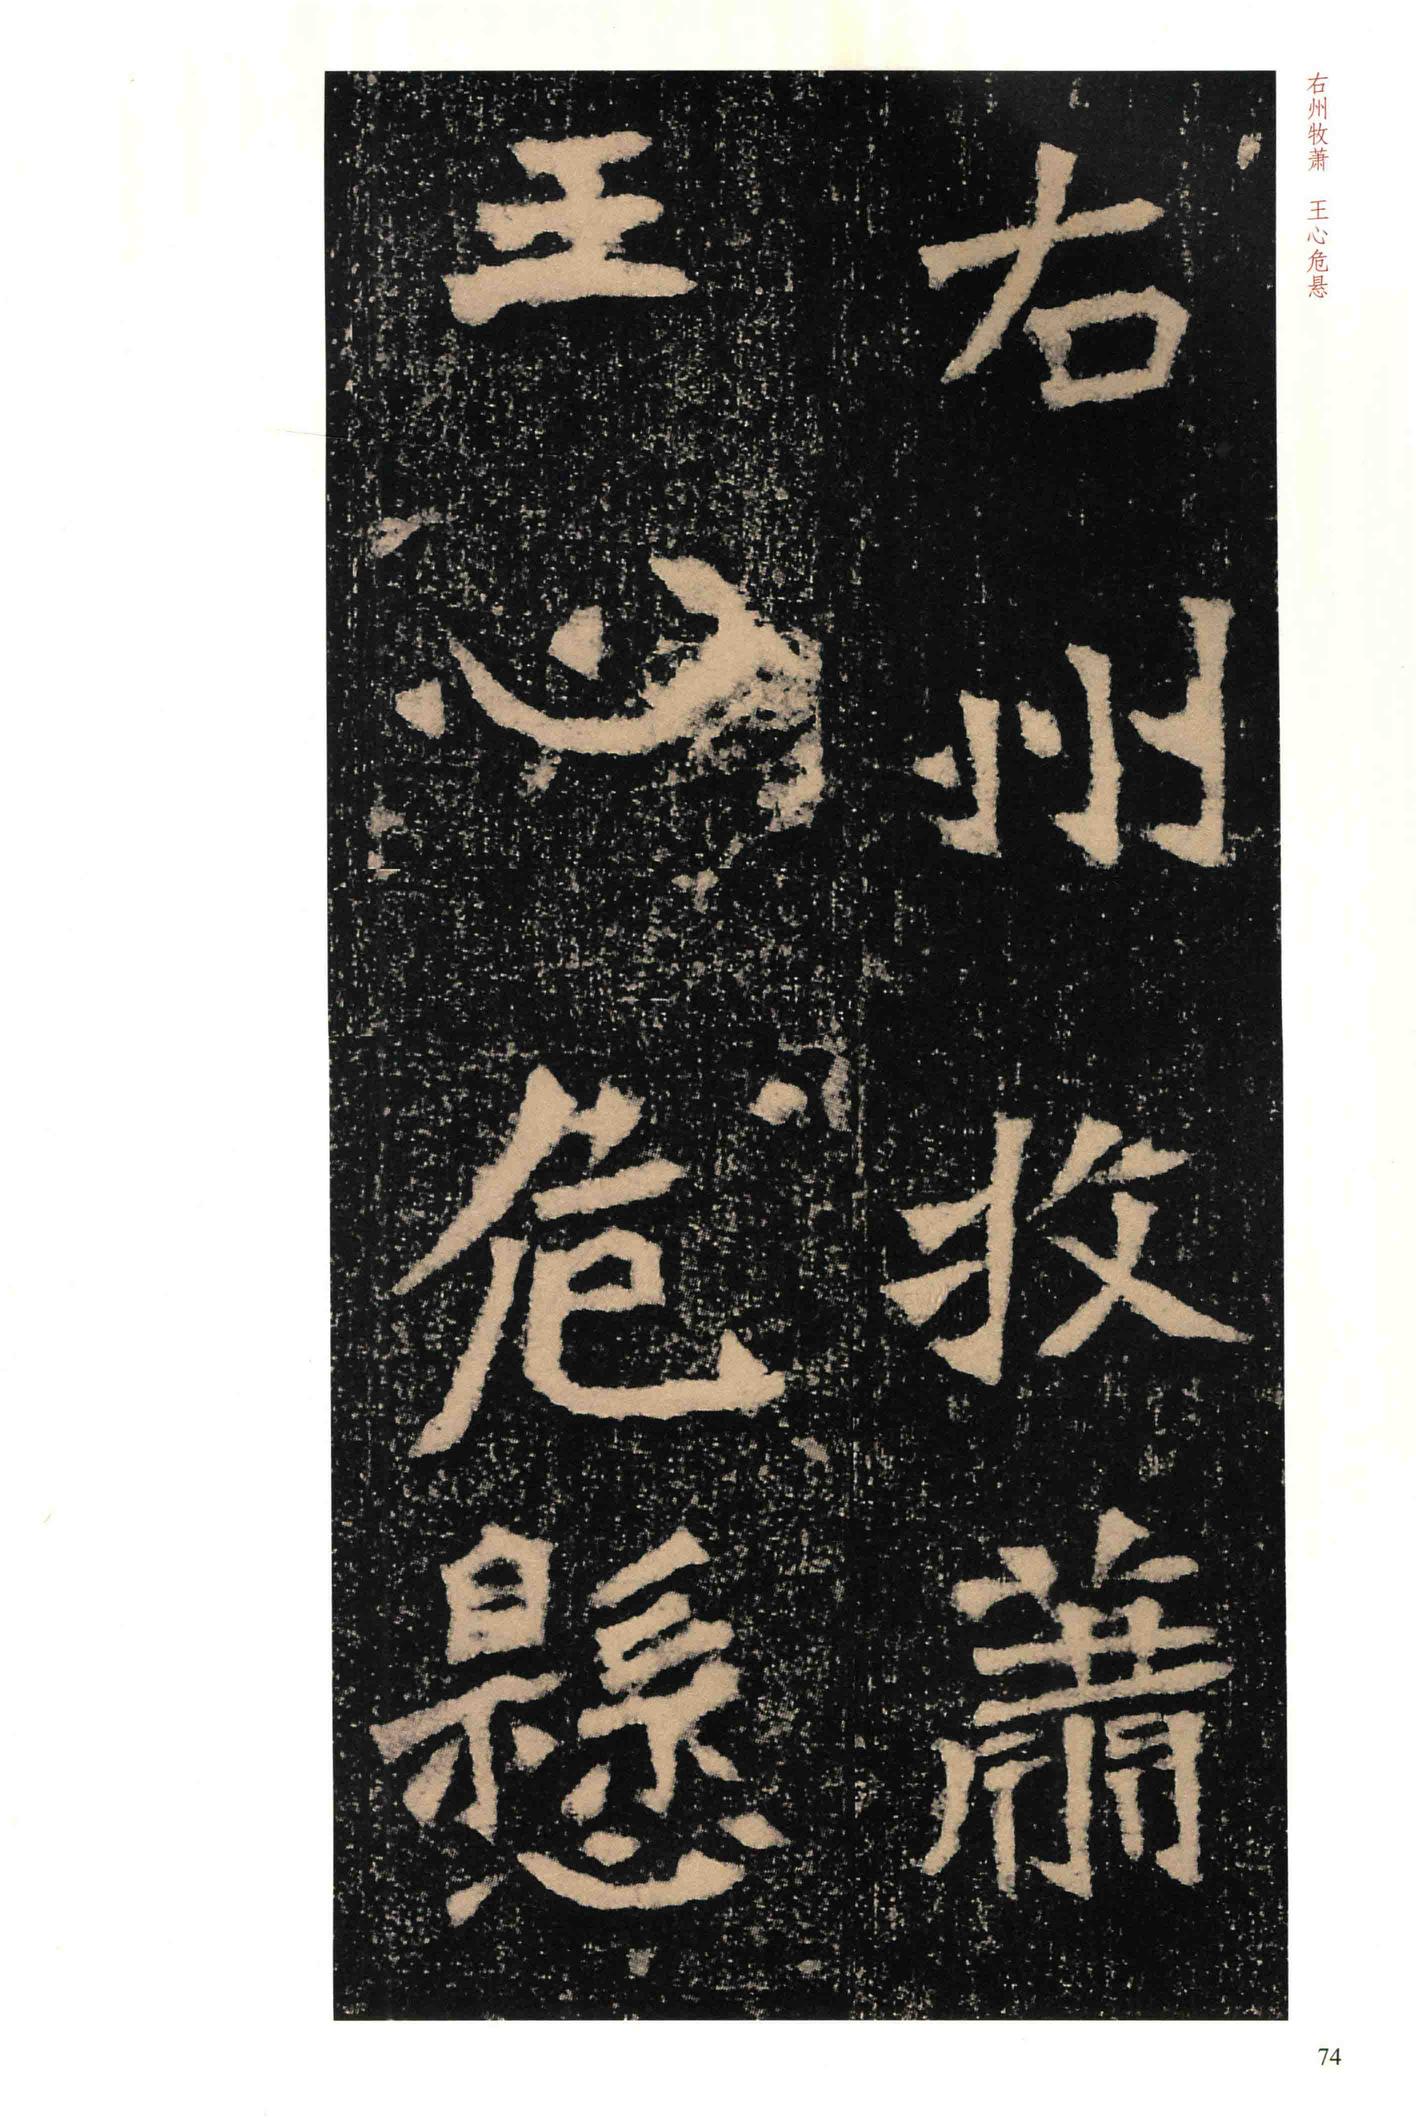 右州牧萧　王心危悬
右州牧蕭
王心危懸
74